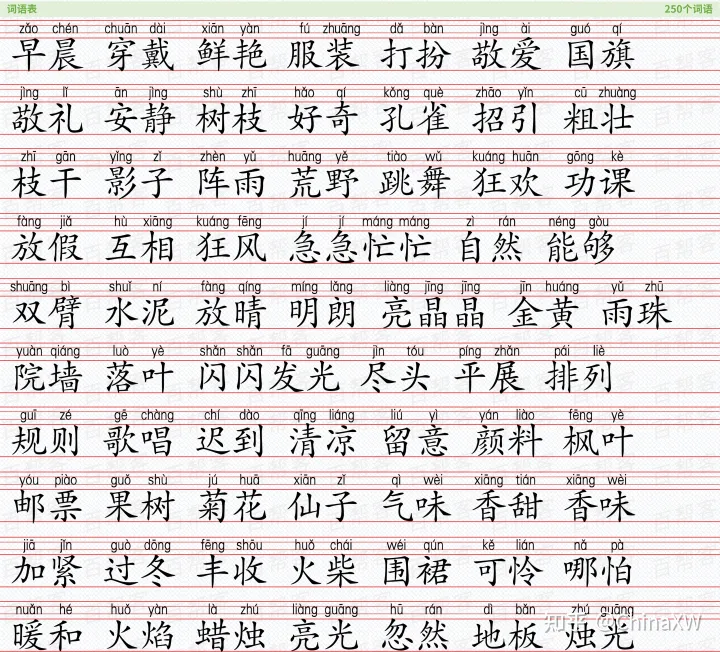 词语表 250个词语
zǎo chén chuān dài xiān yàn fú zhuāng dǎ bàn jìng ài guó qí
早晨 穿戴 鲜艳 服装 打扮 敬爱 国旗
jìng lǐ ān jìng shù zhī hǎo qí kǒng què zhāo yǐn cū zhuàng
敬礼 安静 树枝 好奇 孔雀 招引 粗壮
zhī gān yǐng zǐ zhèn yǔ huāng yě tiào wǔ kuáng huān gōng kè
枝干 影子 阵雨 荒野 跳舞 狂欢 功课
fàng jiǎ hù xiāng kuáng fēng jí jí máng máng zì rán néng gòu
放假 互相 狂风 急急忙忙 自然 能够
shuāng bì shuǐ ní fàng qíng míng lǎng liàng jīng jīng jīn huáng yǔ zhū
双臂 水泥 放晴 明朗 亮晶晶 金黄 雨珠
yuàn qiáng luò yè shǎn shǎn fā guāng jìn tóu píng zhǎn pái liè
院墙 落叶 闪闪发光 尽头 平展 排列
guī zé gē chàng chí dào qīng liáng liú yì yán liào fēng yè
规则 歌唱 迟到 清凉 留意 颜料 枫叶
yóu piào guǒ shù jú huā xiān zǐ qì wèi xiāng tián xiāng wèi
邮票 果树 菊花 仙子 气味 香甜 香味
jiā jǐn guò dōng fēng shōu huǒ chái wéi qún kě lián nǎ pà
加紧 过冬 丰收 火柴 围裙 可怜 哪怕
nuǎn hé huǒ yàn là zhú liàng guāng hū rán dì bǎn zhú guāng
暖和 火焰 蜡烛 亮光 忽然 地板 烛光
知乎 @ChinaXW